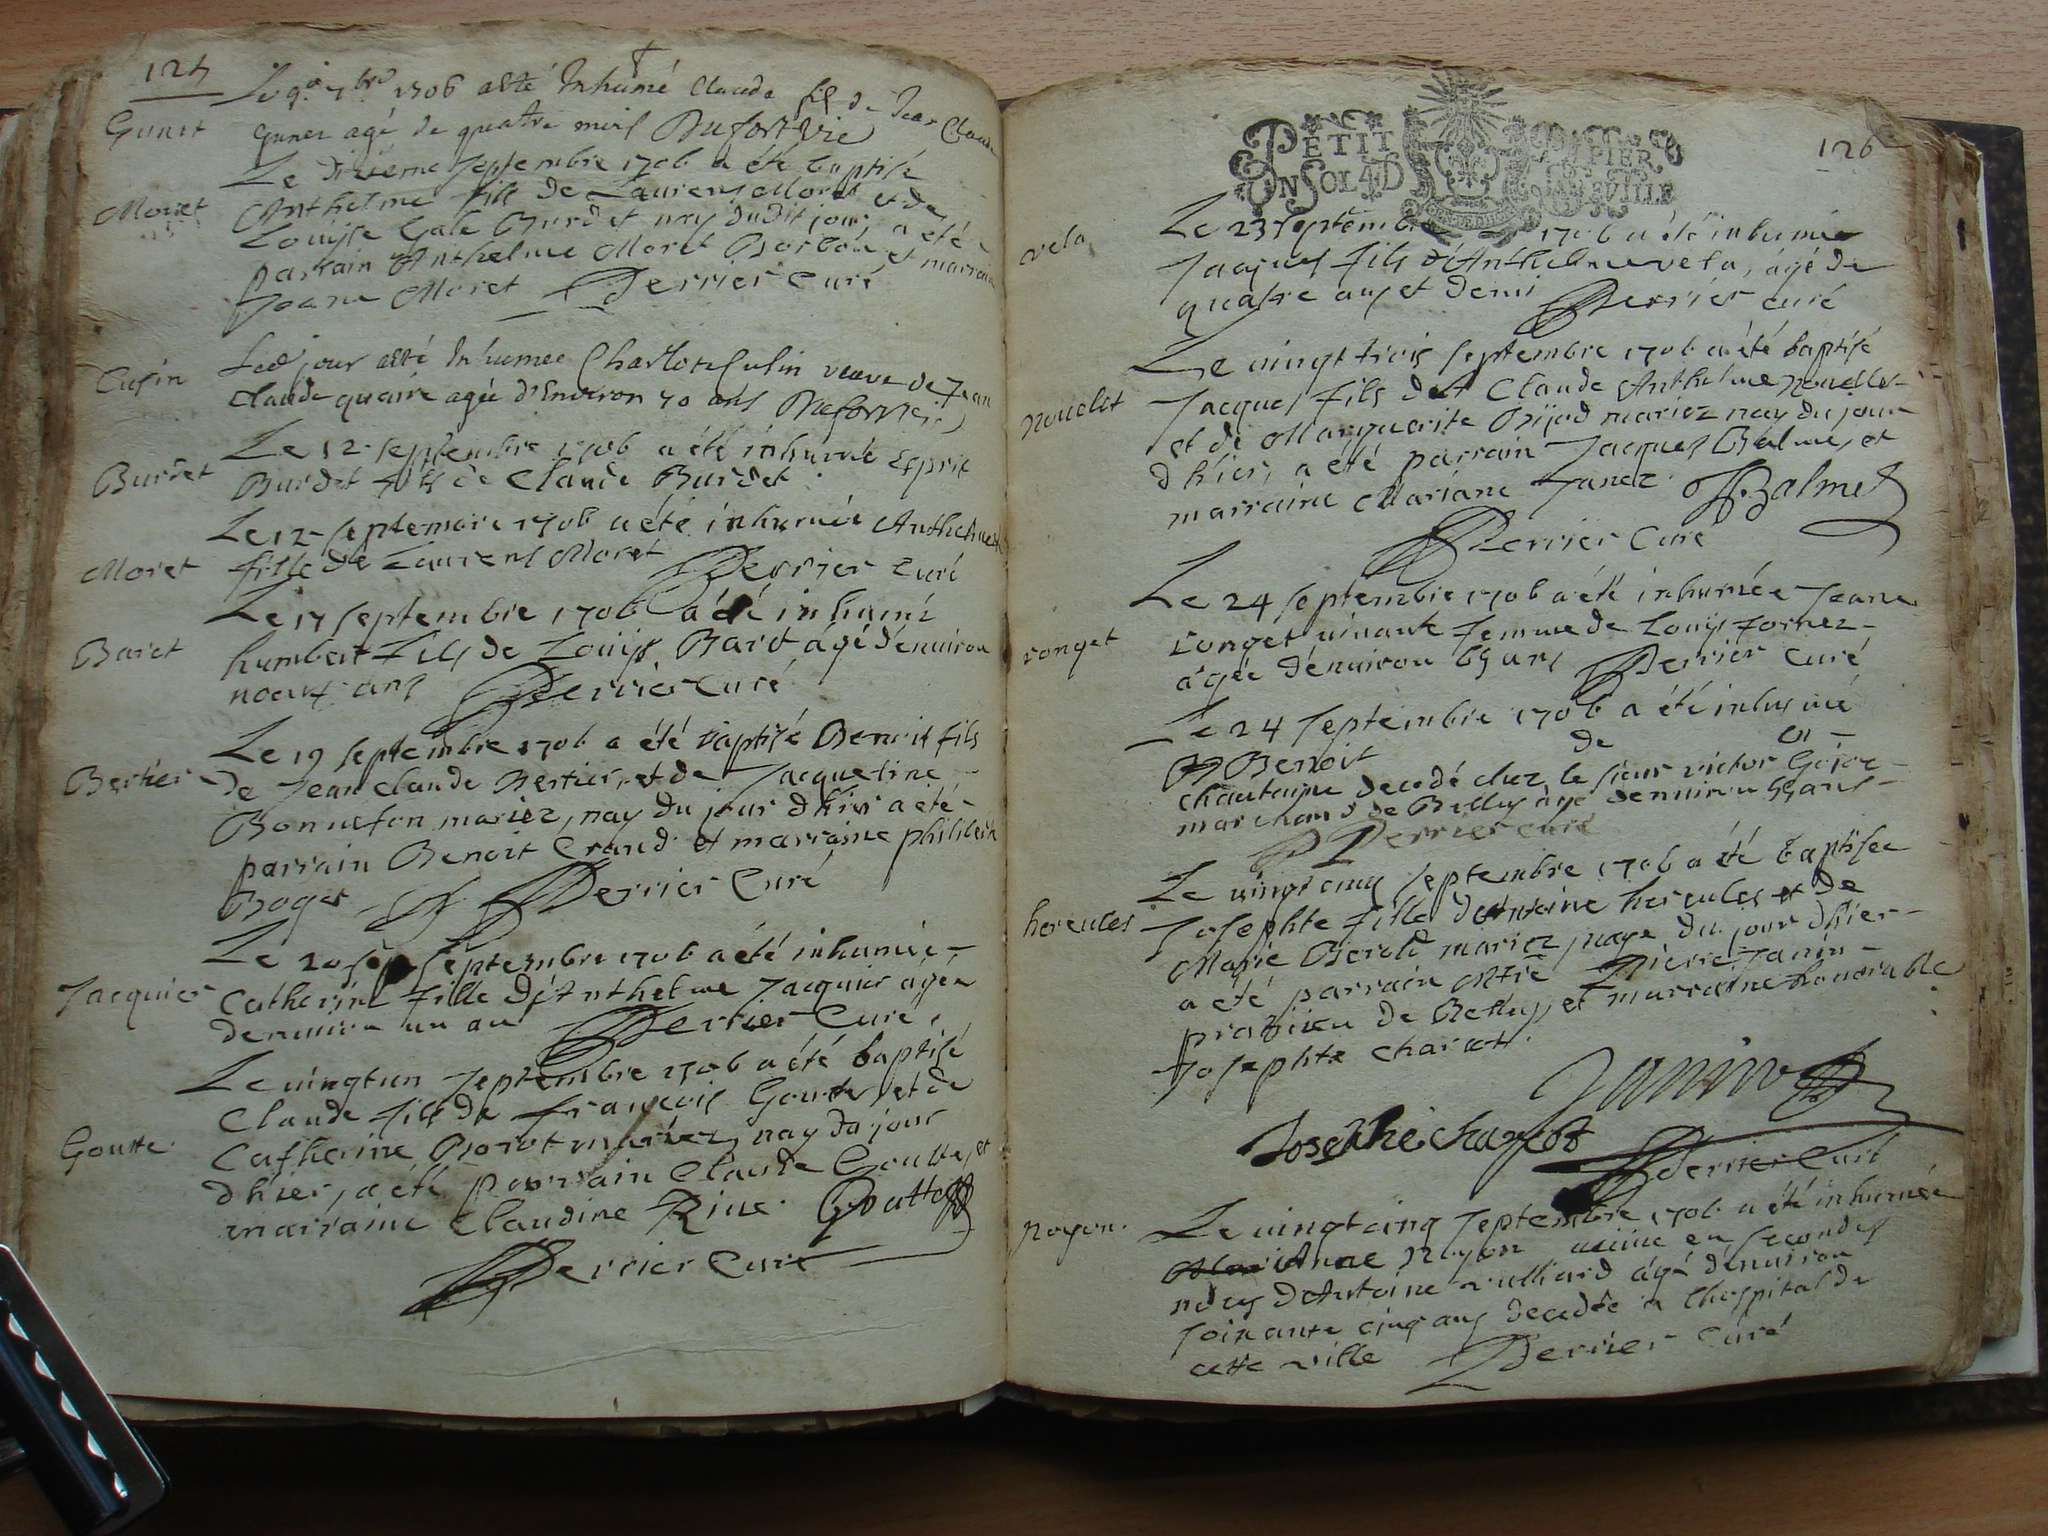 125
Gunet
Le 9e 7bre 1706 a esté Inhumé Claude fils de Jean Claude
Gunet agé de quatre mois Dufort Vic
Moret
Le dixieme septembre 1706 a été baptisé
Anthelme fils de Laurens Moret et de
Louise Burdet nay dudit jour, a été
parrain Anthelme Moret et marraine
Joane Moret Derrier Curé
Cusin
Led jour a esté Inhumee Charlote Cusin veuve de Jean
Claude agée d'Environ 70 ans
Burdet
Le 12 septembre 1706 a été inhumé Esprit
Burdet fils de Claude Burdet
Moret
Le 12 septembre 1706 a été inhumée Anthelmette
fille de Laurens Moret Derrier Curé
Baret
Le 17 septembre 1706 a été inhumé
humbert fils de Louijs Baret âgé d'environ
noeuf ans Derrier Curé
Bertier
Le 19 septembre 1706 a été baptisé Benoit fils
de Jean Claude Bertier, et de Jacqueline
Bonnefon mariez, nay du jour d'hier a été
parrain Benoit Crand et marraine philiberte
Roger Derrier Curé
Jacquier
Le 20 septembre 1706 a été inhumée
Catherine fille d'Anthelme Jacquier agée
denviron un an Derrier Curé
Goutte
Le vingtun septembre 1706 a été baptisé
Claude fils de François Goutte, et de
Catherine Borot mariez, nay du jour
d'hier, a été parrain Claude Goutte, et
marraine Claudine Rive. Goutte
Derrier Curé
PETIT PAPIER
UN SOL 4 D LA FEUILLE
126
vela
Le 23 septembre 1706 a été inhumé
Jacques fils d'Anthelme vela, agé de
quatre ans et demi Derrier curé
Nouelet
Le vingt trois septembre 1706 a été baptisé
Jacques fils de Claude Anthelme Nouellet
et de Marguerite mariez nay du jour
d'hier, a été parrain Jacques Balme, et
marraine Mariane Janez. Balme
Derrier Curé
ronget
Le 24 septembre 1706 a été inhumée Jeane
ronget vivante femme de Louijs fornez
agée d'environ 65 ans Derrier Curé
Le 24 septembre 1706 a été inhumé
Benoit de en
chautagne decedé chez le sieur victor
marchand de Belley âgé denviron ans
Derrier curé
hercules
Le vingt cinq septembre 1706 a été baptisée
Josephte fille d'Antoine hercules et de
Marie mariez, naye du jour d'hier
a été parrain Mtre Pierre Janin
praticien de Belley, et marraine honorable
Josephte Charcot.
Janin
Josephte charcot
Derrier Curé
Noyon.
Le vingt cinq septembre 1706 a été inhumée
Anne Noyon veuve en secondes
nôces d'Antoine vulliard agé d'environ
soixante cinq ans decedée a l'hospital de
cette ville Derrier Curé